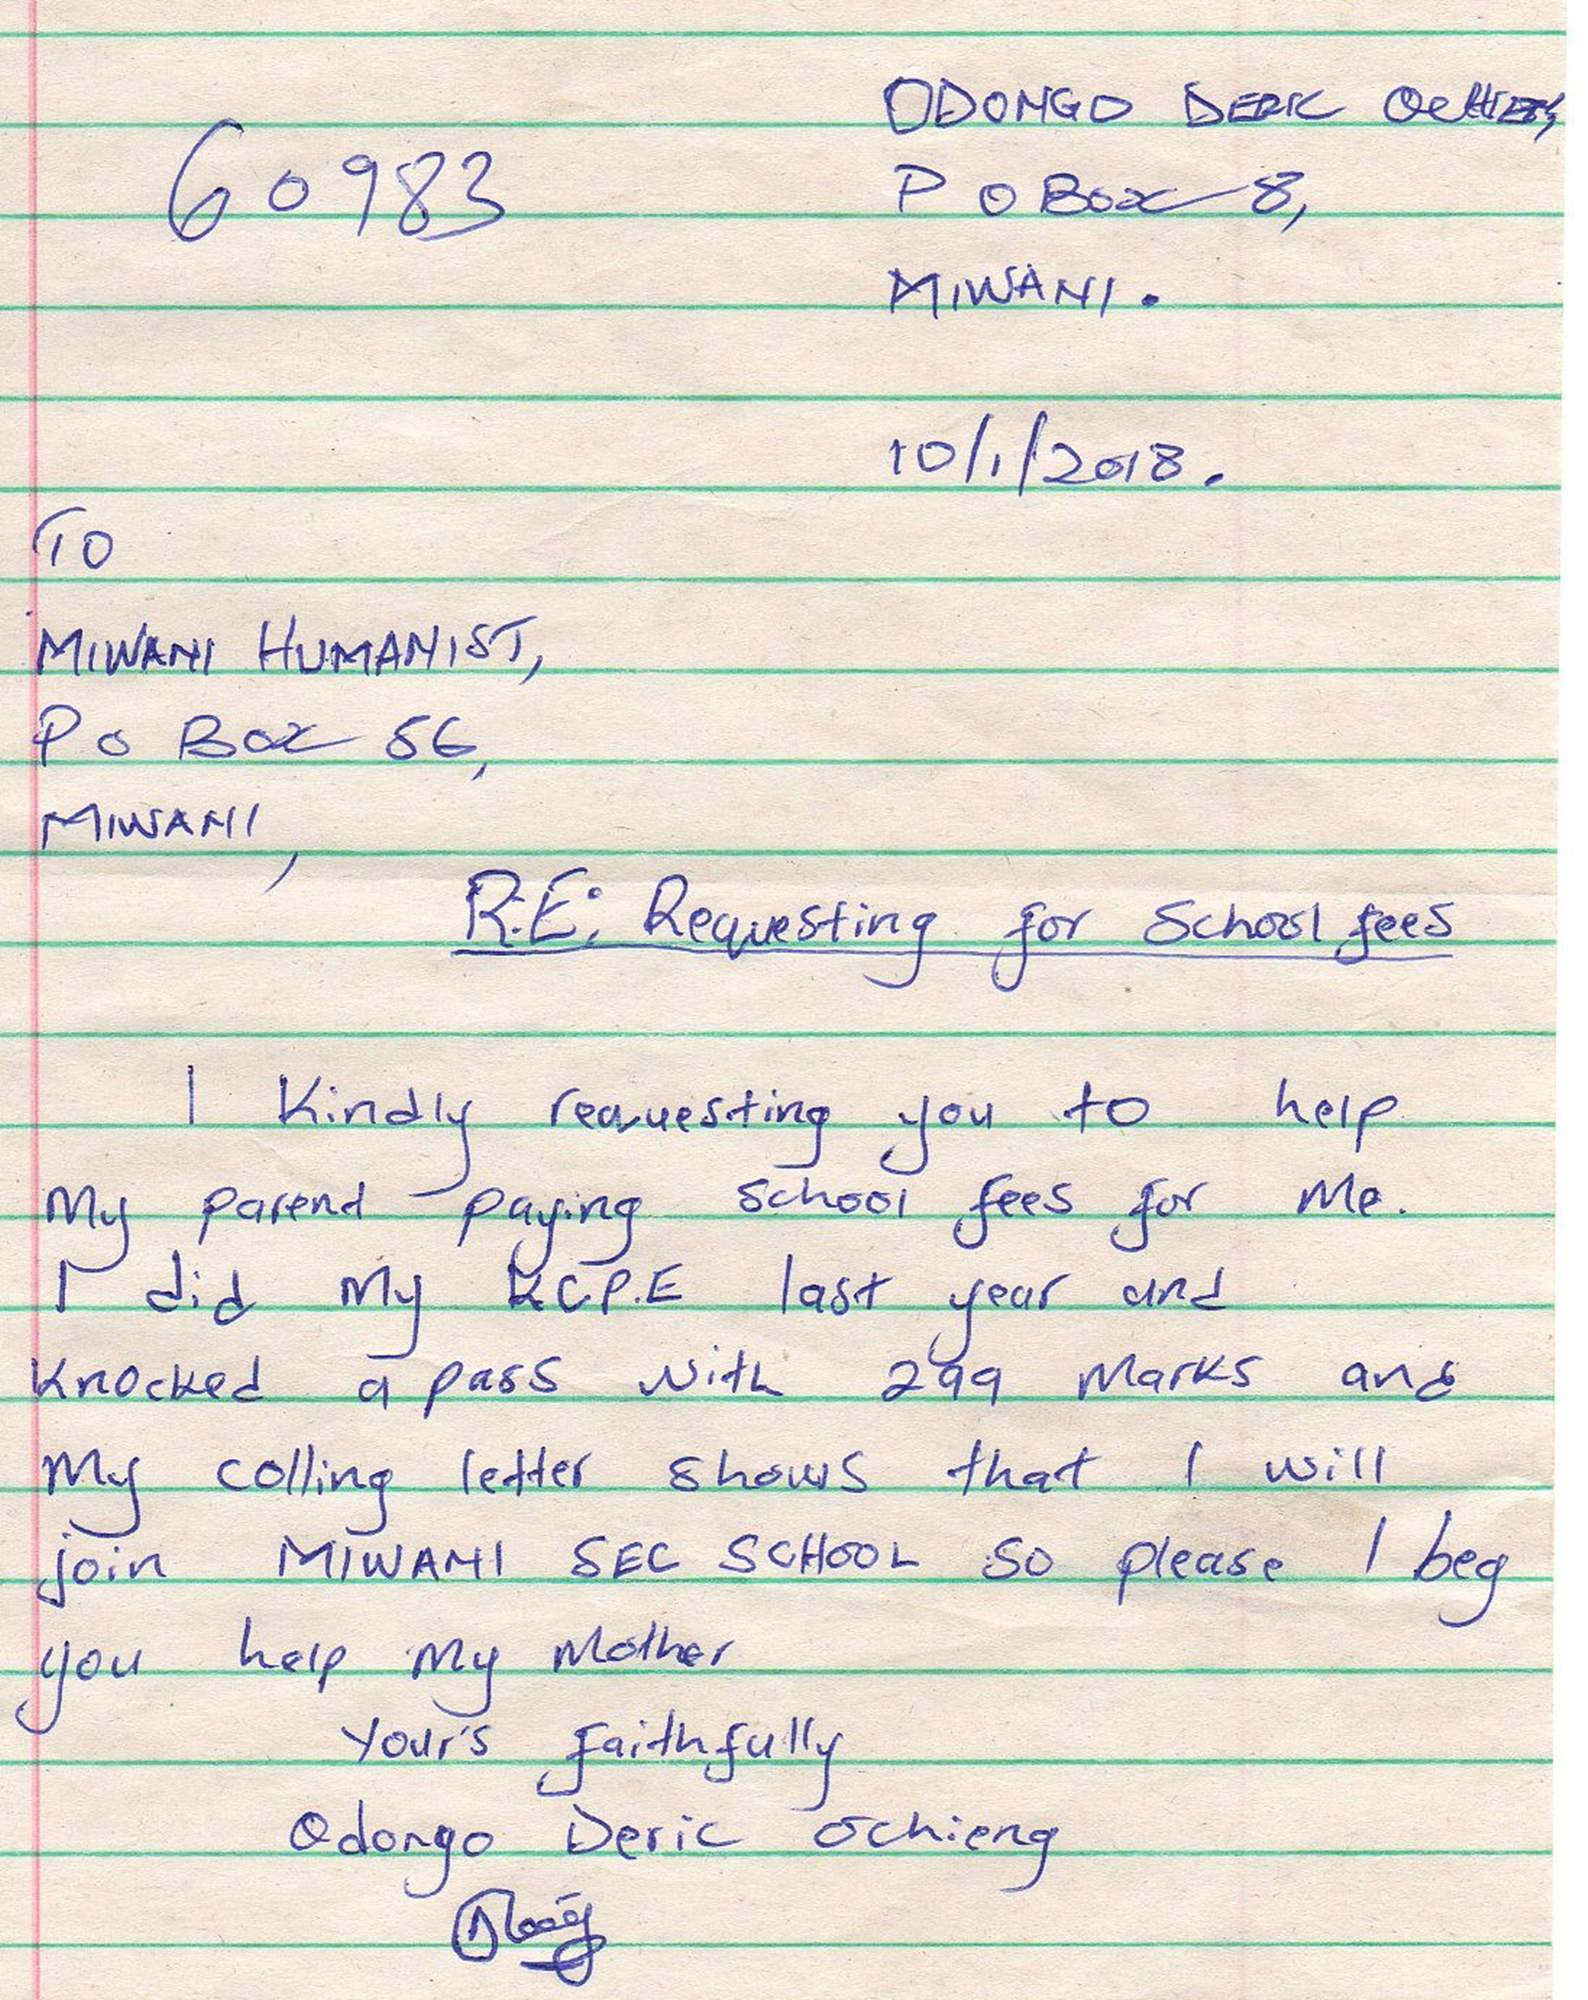 ODONGO DERIC
60983
P O Box 8,
MIWANI.
10/1/2018.
TO
MIWANI HUMANIST,
P o Box 56,
MIWANI,
R.E: Requesting for School fees
I Kindly requesting you to help
My parend paying school fees for Me.
I did My K.C.P.E last year and
Knocked a pass with 299 Marks and
My colling letter shows that I will
join MIWANI SEC SCHOOL so please I beg
you help My Mother
Your's faithfully
Odongo Deric Ochieng